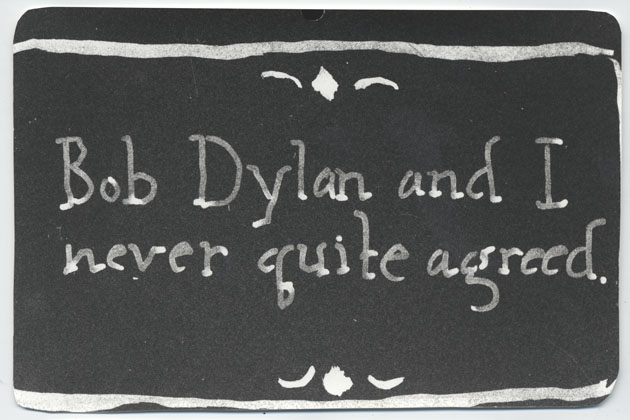 Bob Dylan and I
never quite agreed.